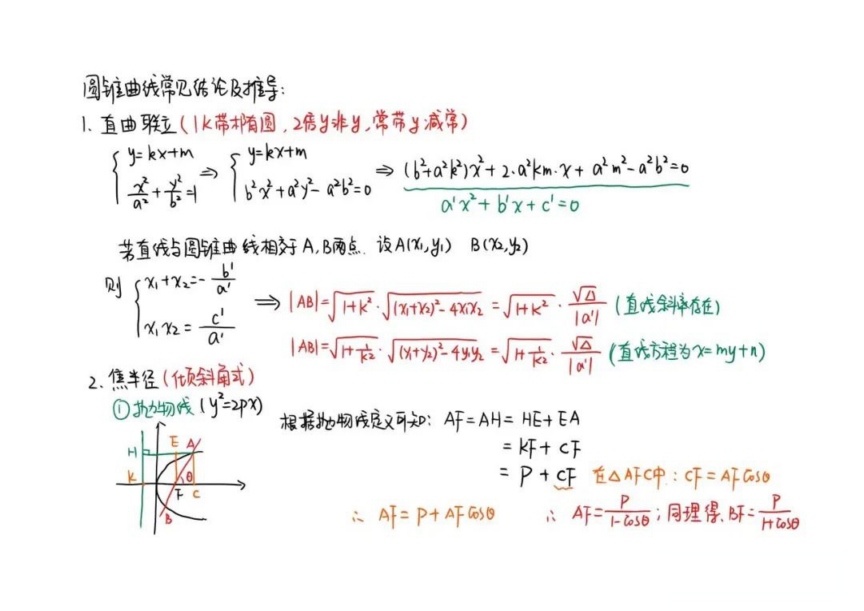 圆锥曲线常见结论及推导:
1. 直曲联立(1K带椭圆,2倍y非y,常带y减常)
{ y=kx+m ⇒ { y=kx+m ⇒ (b²+a²k²)x²+2·a²km·x+a²m²-a²b²=0
x²/a²+y²/b²=1 b²x²+a²y²-a²b²=0 a'x²+b'x+c'=0
若直线与圆锥曲线相交于A,B两点. 设A(x₁,y₁) B(x₂,y₂)
则 { x₁+x₂=-b'/a' ⇒ |AB|=√(1+k²)·√((x₁+x₂)²-4x₁x₂)=√(1+k²)·√Δ/|a'| (直线斜率存在)
x₁x₂=c'/a' |AB|=√(1+1/k²)·√((y₁+y₂)²-4y₁y₂)=√(1+1/k²)·√Δ/|a'| (直线方程为x=my+n)
2. 焦半径(倾斜角式)
①抛物线(y²=2px)
根据抛物线定义可知: AF=AH=HE+EA
=KF+CF
=P+CF 在△AFC中: CF=AFcosθ
∴ AF=P+AFcosθ ∴ AF=P/(1-cosθ);同理得.BF=P/(1+cosθ)
H E A
K F θ C
B